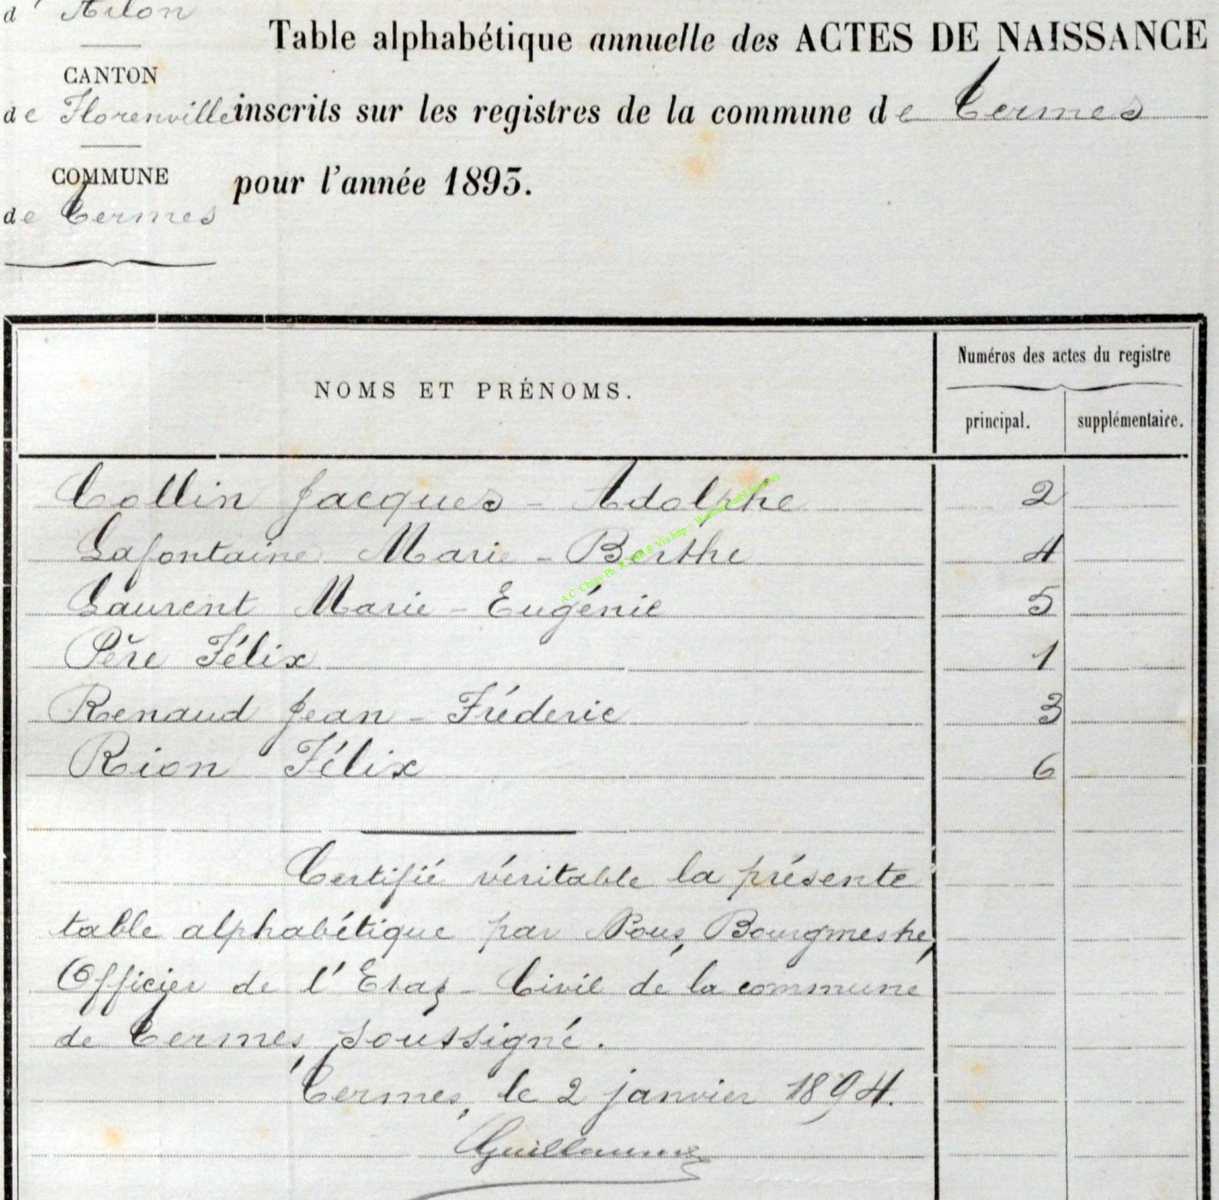 d' Arlon
CANTON
de Florenville
COMMUNE
de Termes
Table alphabétique annuelle des ACTES DE NAISSANCE
inscrits sur les registres de la commune de Termes
pour l'année 1893.
NOMS ET PRÉNOMS.
Numéros des actes du registre
principal. supplémentaire.
Collin Jacques - Adolphe 2
Lafontaine Marie - Berthe 4
Laurent Marie - Eugénie 5
Père Félix 1
Renaud Jean - Fréderic 3
Rion Félix 6
Certifié véritable la présente
table alphabétique par Nous, Bourgmestre,
Officier de l'Etat - Civil de la commune
de Termes, soussigné.
Termes, le 2 janvier 1894.
Guillaume